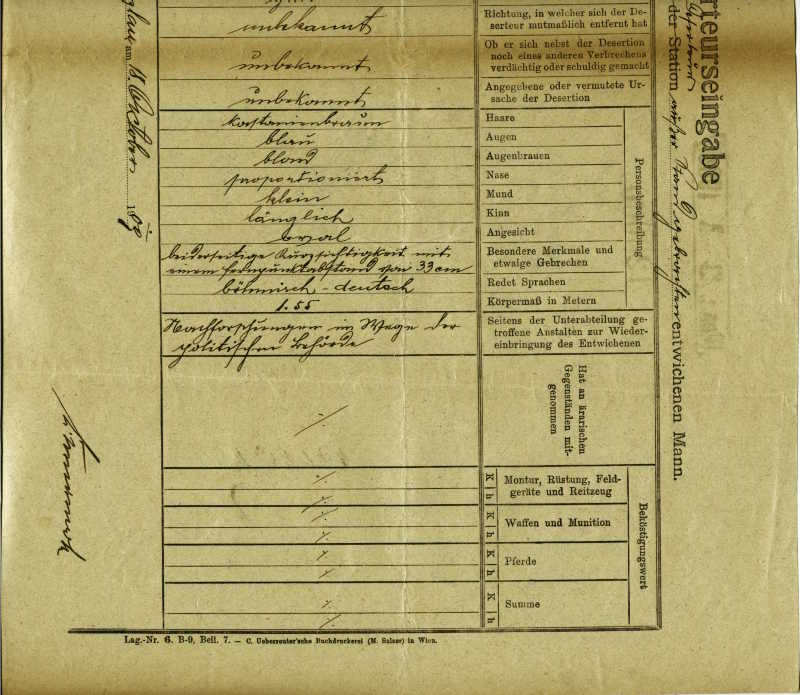 rteurseingabe
der Station
entwichenen Mann.
unbekannt
Richtung, in welcher sich der De-
serteur mutmaßlich entfernt hat
unbekannt
Ob er sich nebst der Desertion
noch eines anderen Verbrechens
verdächtig oder schuldig gemacht
unbekannt
Angegebene oder vermutete Ur-
sache der Desertion
Personsbeschreibung
kastanienbraun
Haare
blau
Augen
blond
Augenbrauen
proportioniert
Nase
klein
Mund
länglich
Kinn
oval
Angesicht
beiderseitige Kurzsichtigkeit mit
einem Fernpunktabstand von 33 cm
Besondere Merkmale und
etwaige Gebrechen
böhmisch - deutsch
Redet Sprachen
1.55
Körpermaß in Metern
Nachforschungen im Wege der
politischen Behörde
Seitens der Unterabteilung ge-
troffene Anstalten zur Wieder-
einbringung des Entwichenen
Hat an ärarischen
Gegenständen mit-
genommen
Beköstigungswert
K
h
Montur, Rüstung, Feld-
geräte und Reitzeug
K
h
Waffen und Munition
K
h
Pferde
K
h
Summe
glau am 8. October 1909
Lag.-Nr. 6. B-9, Beil. 7. — C. Ueberreuter'sche Buchdruckerei (M. Salzer) in Wien.